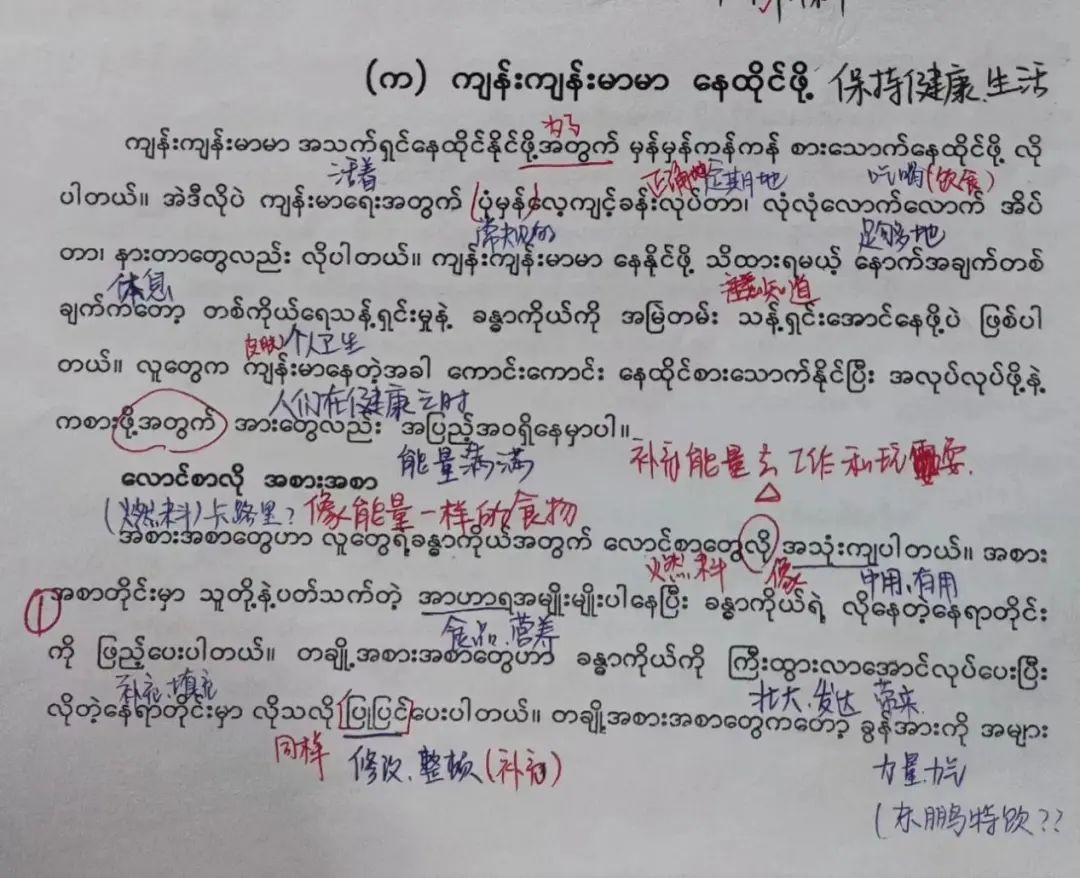 (က) ကျန်းကျန်းမာမာ နေထိုင်ဖို့ 保持健康生活
ကျန်းကျန်းမာမာ အသက်ရှင်နေထိုင်နိုင်ဖို့အတွက် မှန်မှန်ကန်ကန် စားသောက်နေထိုင်ဖို့ လို
活着 正确地 定期地 吃喝(饮食)
ပါတယ်။ အဲဒီလိုပဲ ကျန်းမာရေးအတွက် ပုံမှန်လေ့ကျင့်ခန်းလုပ်တာ၊ လုံလုံလောက်လောက် အိပ်
常规的 足够地
တာ၊ နားတာတွေလည်း လိုပါတယ်။ ကျန်းကျန်းမာမာ နေနိုင်ဖို့ သိထားရမယ့် နောက်အချက်တစ်
休息 知道
ချက်ကတော့ တစ်ကိုယ်ရေသန့်ရှင်းမှုနဲ့ ခန္ဓာကိုယ်ကို အမြဲတမ်း သန့်ရှင်းအောင်နေဖို့ပဲ ဖြစ်ပါ
个人卫生
တယ်။ လူတွေက ကျန်းမာနေတဲ့အခါ ကောင်းကောင်း နေထိုင်စားသောက်နိုင်ပြီး အလုပ်လုပ်ဖို့နဲ့
人们在健康之时
ကစားဖို့အတွက် အားတွေလည်း အပြည့်အဝရှိနေမှာပါ။
能量满满 补充能量去工作和玩耍.
လောင်စာလို အစားအစာ
(燃料)卡路里? 像能量一样的食物
အစားအစာတွေဟာ လူတွေရဲ့ခန္ဓာကိုယ်အတွက် လောင်စာတွေလို အသုံးကျပါတယ်။ အစား
燃料 像 中用、有用
①
အစာတိုင်းမှာ သူတို့နဲ့ပတ်သက်တဲ့ အာဟာရအမျိုးမျိုးပါနေပြီး ခန္ဓာကိုယ်ရဲ့ လိုနေတဲ့နေရာတိုင်း
食品、营养
ကို ဖြည့်ပေးပါတယ်။ တချို့အစားအစာတွေဟာ ခန္ဓာကိုယ်ကို ကြီးထွားလာအောင်လုပ်ပေးပြီး
补充、填充 壮大、发达 带来
လိုတဲ့နေရာတိုင်းမှာ လိုသလို ပြုပြင်ပေးပါတယ်။ တချို့အစားအစာတွေကတော့ ခွန်အားကို အများ
同样 修改、整顿(补充) 力量、力气
(东鹏特饮??